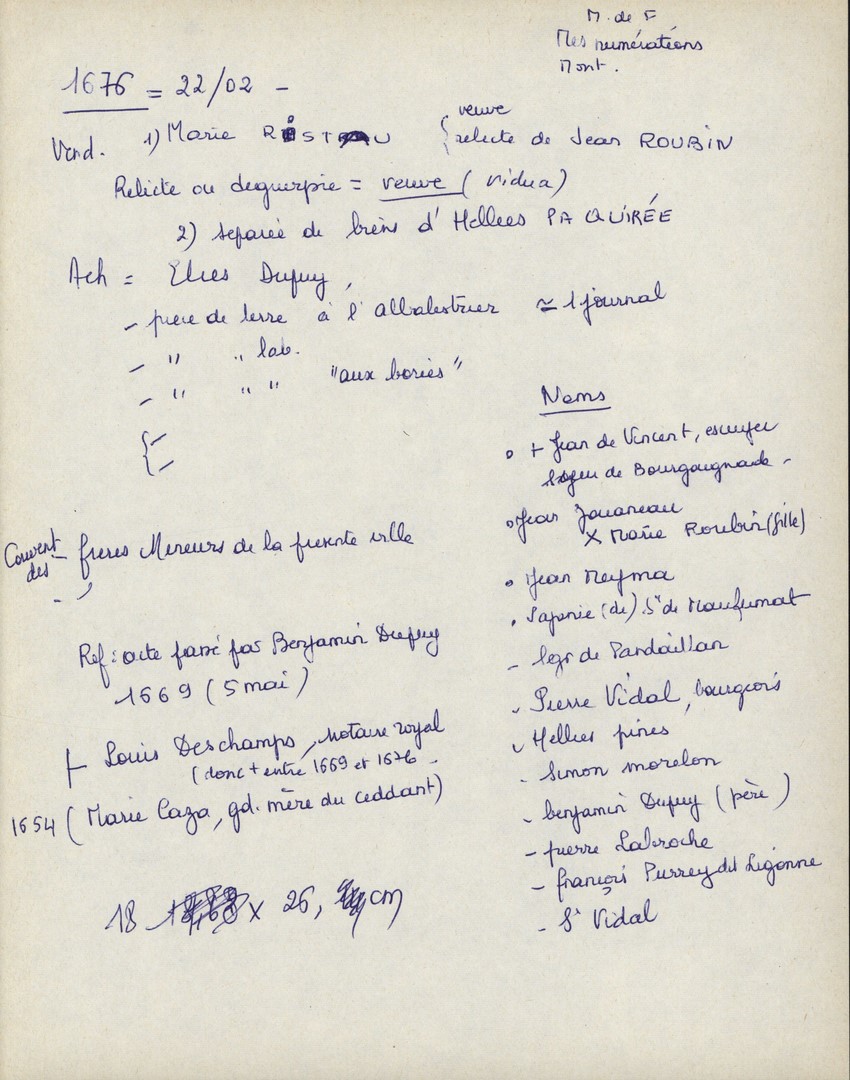 M. de F
Mes numérotéons
Mont.
1676 = 22/02 -
Vend. 1) Marie RISTEAU { veuve
relicte de Jean ROUBIN
Relicte ou deguerpie = veuve ( vidua )
2) séparée de biens d' Hellees PA QUIRÉE
Ach = Elies Dupuy,
- piece de terre à l' albalestrier ≃ 1 journal
- " " lab.
- " " " "aux bories"
{ -
-
Couvent des - freres Mineurs de la presente ville
-
Ref: acte passé par Benjamin Dupuy
1669 ( 5 mai )
Louis Deschamps, notaire royal
( donc + entre 1669 et 1676 -
1654 ( Marie Caza, gd. mère du ceddant )
18 x 26, cm
Noms
• + Jean de Vincent, escuyer
de Bourgaugnade -
• Jean Jouaneau
X Marie Roubin (fille)
• Jean Meyma
• Saporie (de) Sr de Maufumat
- Segr de Pardaillan
- Pierre Vidal, bourgeois
- Hellies pines
- Simon morelon
- benjamin Dupuy ( père )
- pierre Labroche
- françois Purrey dit Ligonne
- Sr Vidal